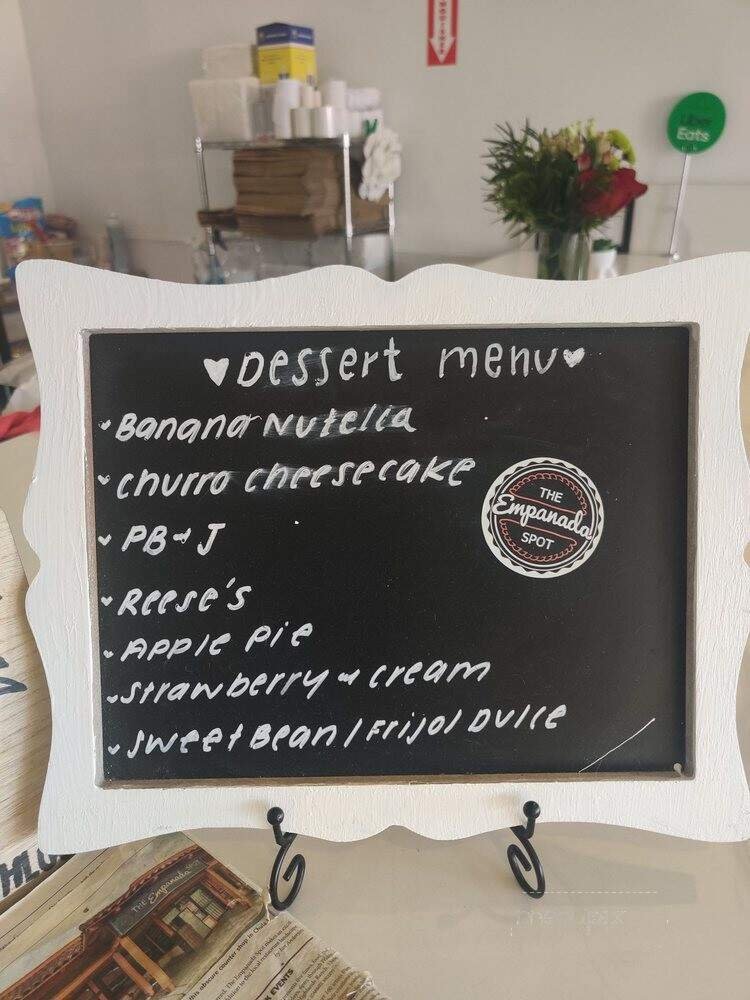 Uber
Eats
♥Dessert menu♥
Banana Nutella
churro cheesecake
PB + J
Reese's
Apple pie
Strawberry + cream
Sweet Bean / Frijol Dulce
THE
Empanada
SPOT
THE Empanada SPOT
EVENTS